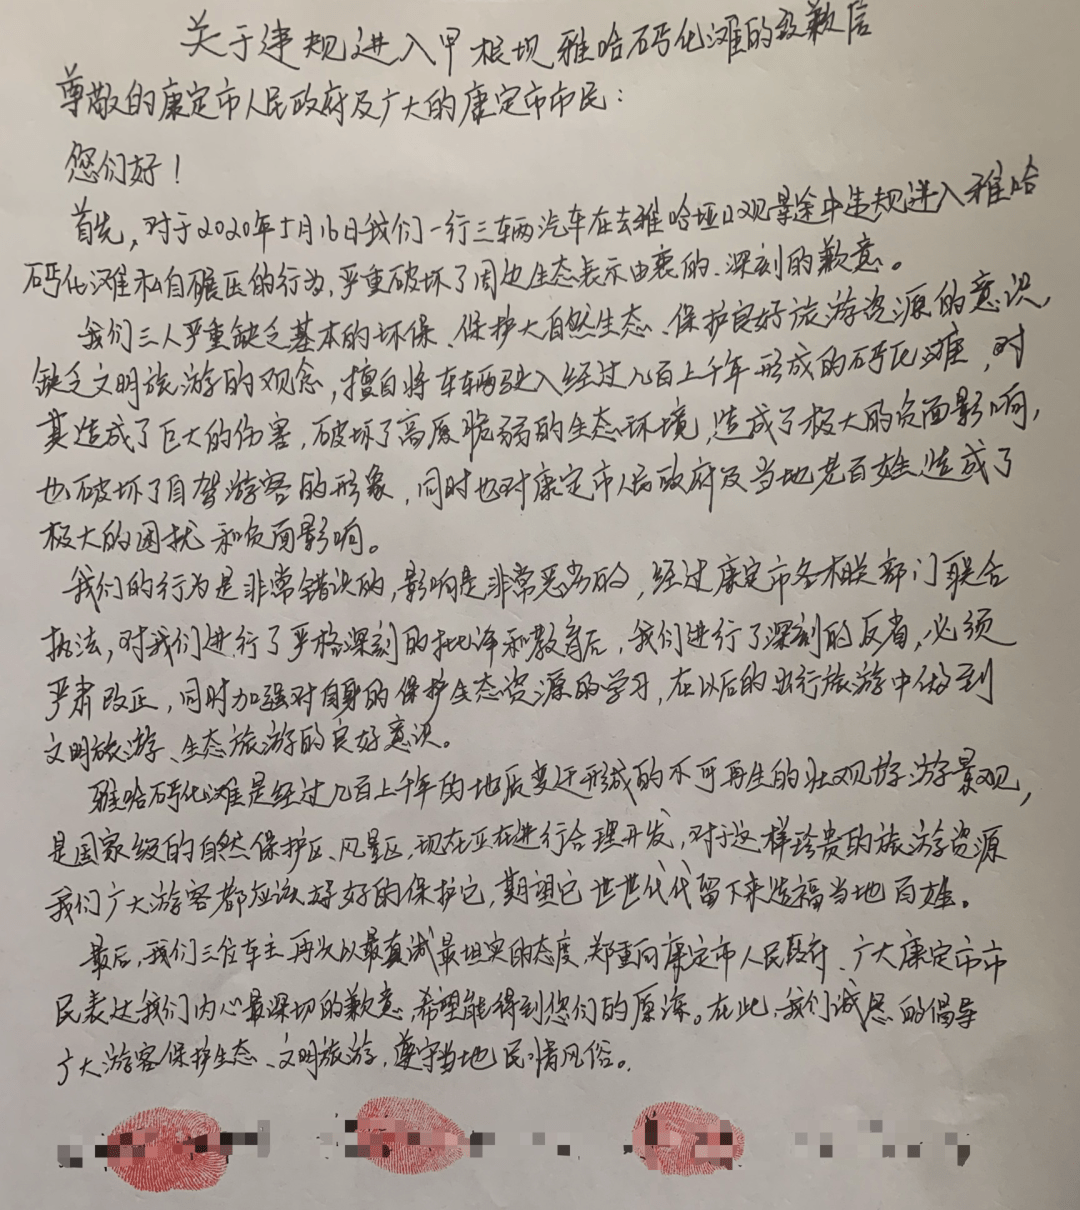 关于违规进入甲根坝雅哈钙化滩的致歉信
尊敬的康定市人民政府及广大的康定市市民：
您们好！
首先，对于2020年5月16日我们一行三辆汽车在去雅哈垭口观景途中违规进入雅哈
钙化滩私自碾压的行为，严重破坏了周边生态表示由衷的、深刻的歉意。
我们三人严重缺乏基本的环保、保护大自然生态、保护良好旅游资源的意识，
缺乏文明旅游的观念，擅自将车辆驶入经过几百上千年形成的钙化滩，对
其造成了巨大的伤害，破坏了高原脆弱的生态环境，造成了极大的负面影响，
也破坏了自驾游客的形象，同时也对康定市人民政府及当地老百姓造成了
极大的困扰和负面影响。
我们的行为是非常错误的，影响是非常恶劣的，经过康定市各相关部门联合
执法，对我们进行了严格深刻的批评和教育后，我们进行了深刻的反省，必须
严肃改正，同时加强对自身的保护生态资源的学习，在以后的出行旅游中做到
文明旅游、生态旅游的良好意识。
雅哈钙化滩是经过几百上千年的地质变迁形成的不可再生的壮观旅游景观，
是国家级的自然保护区、风景区，现在正在进行合理开发，对于这样珍贵的旅游资源
我们广大游客都应该好好的保护它，期望它世世代代留下来造福当地百姓。
最后，我们三位车主再次以最真诚最坦实的态度，郑重向康定市人民政府、广大康定市市
民表达我们内心最深切的歉意，希望能得到您们的原谅。在此，我们诚恳的倡导
广大游客保护生态、文明旅游，遵守当地民情风俗。